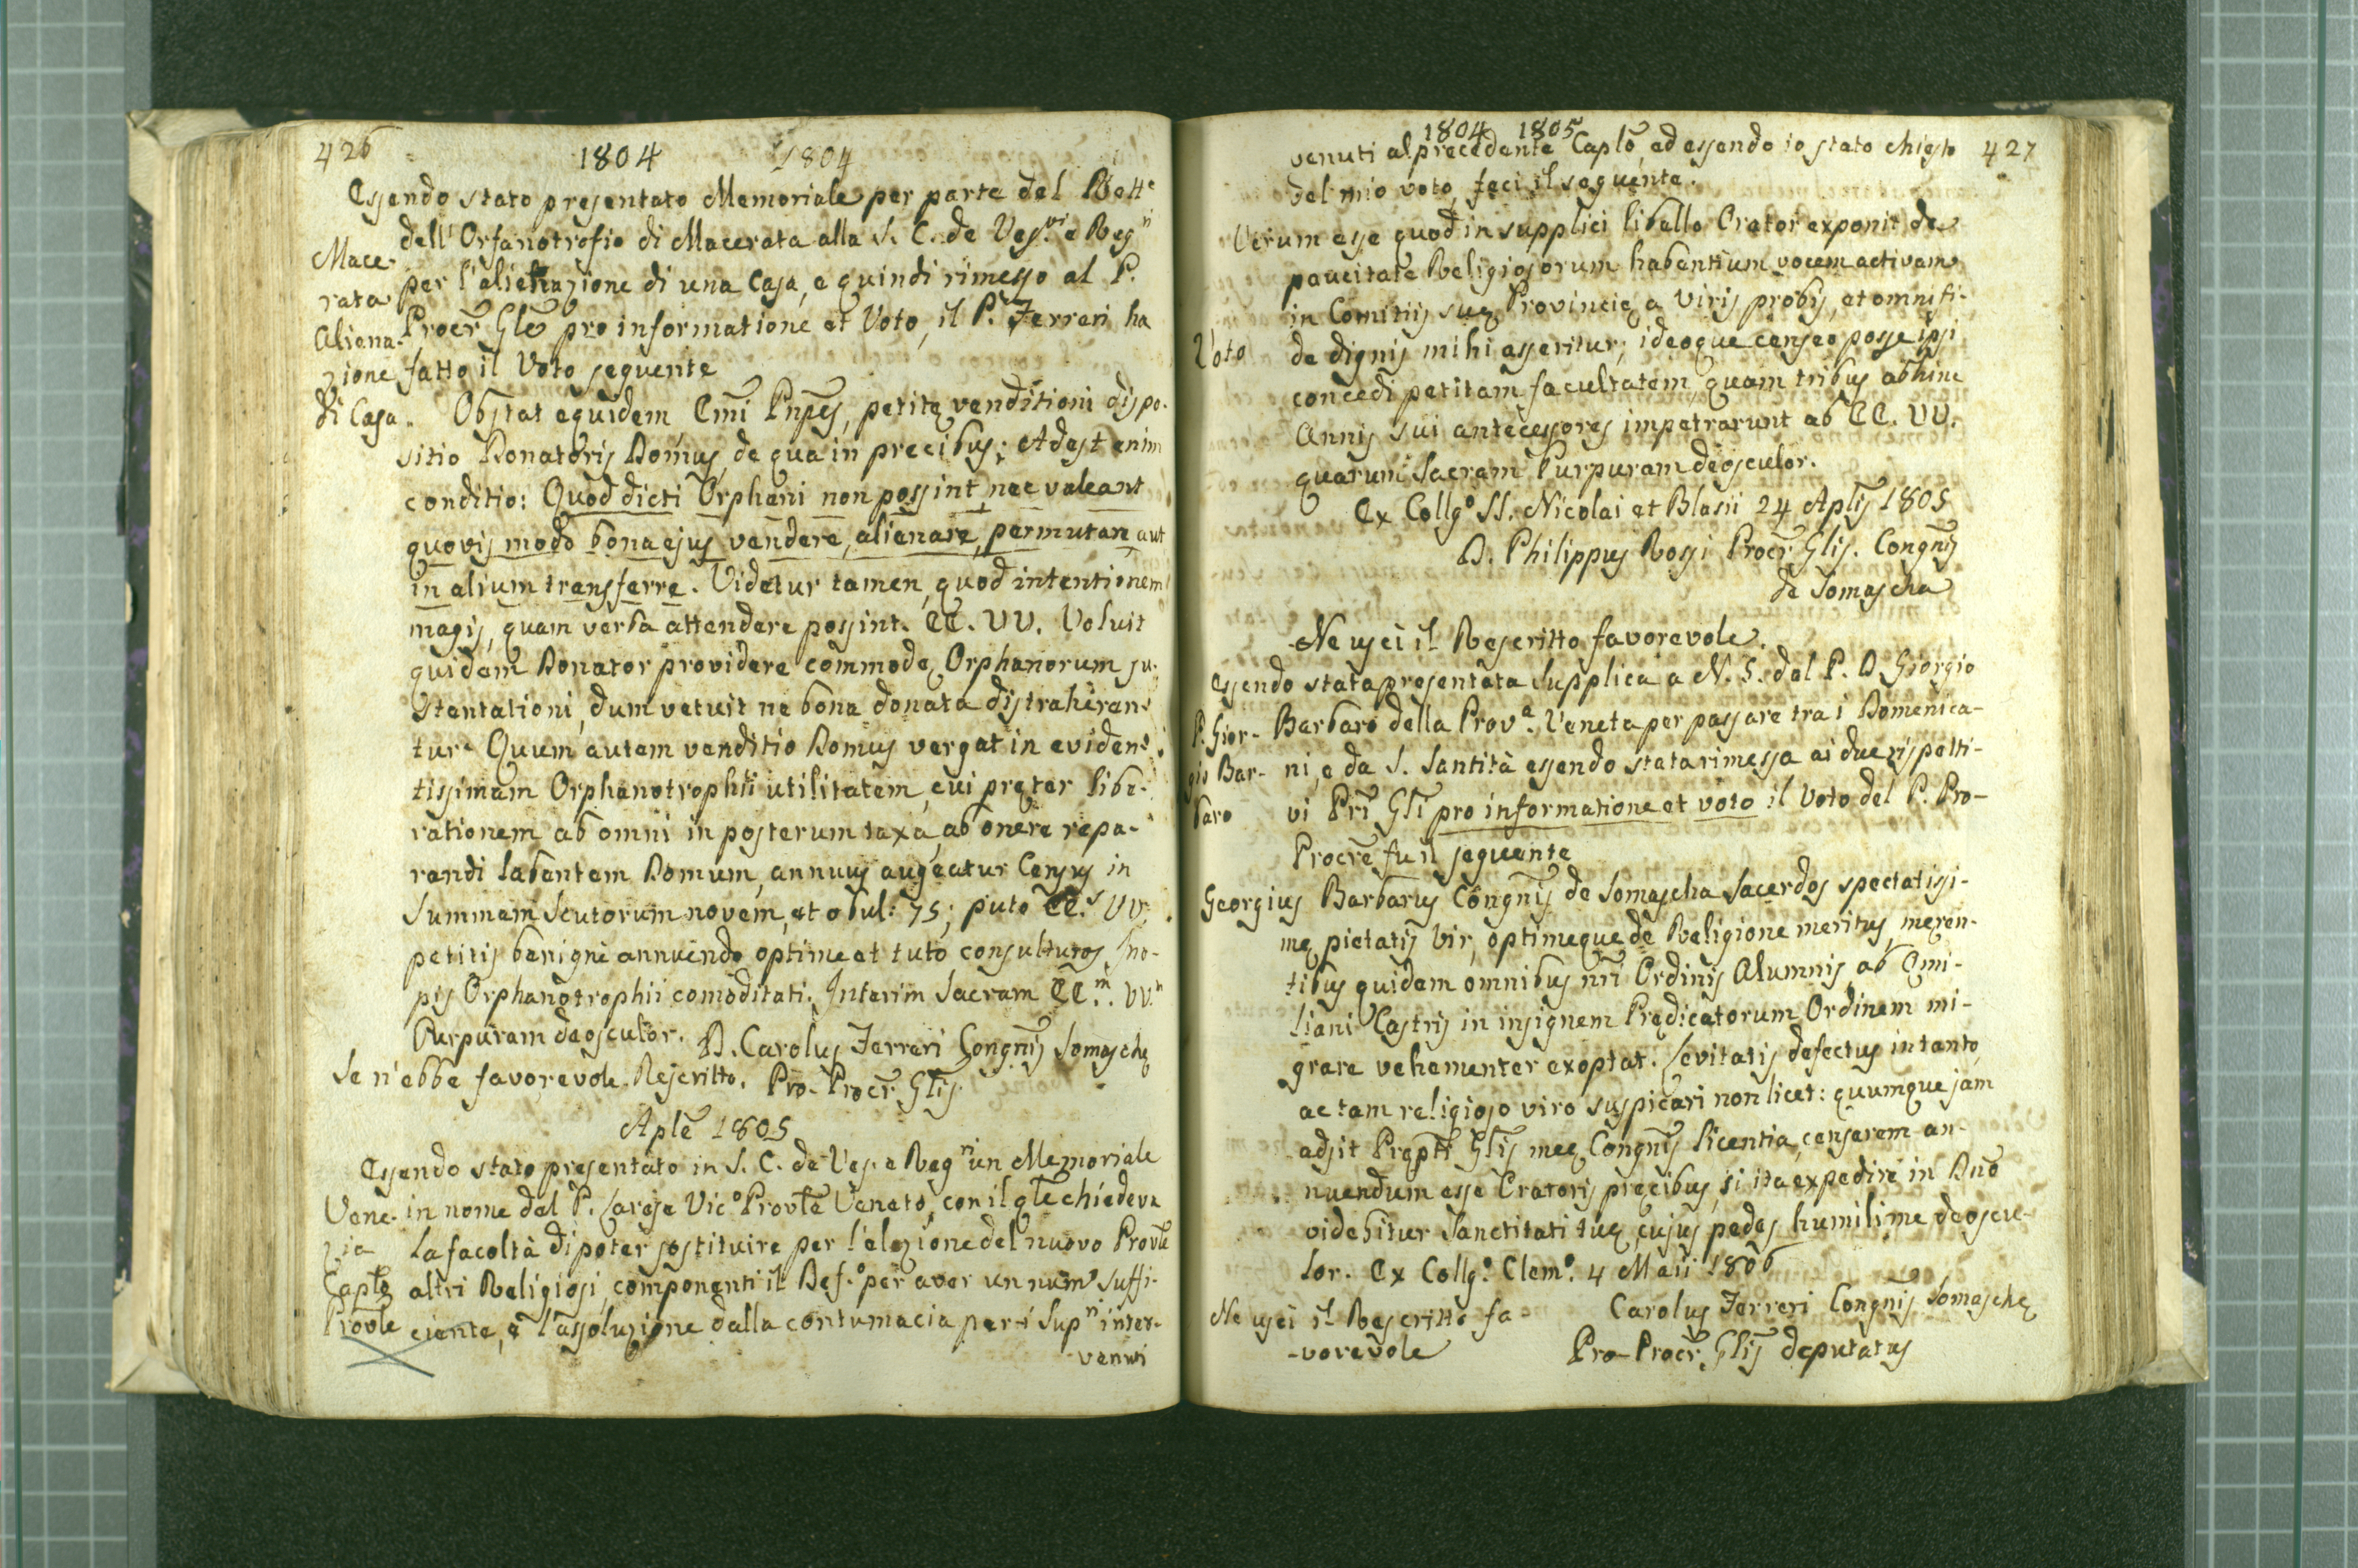 426
1804 1804
Essendo stato presentato Memoriale per parte del Rett.e
dell'Orfanotrofio di Macerata alla S. C. de Ves.vi e Reg.ri
per l'alienazione di una Casa, e quindi rimesso al P.
Procr̃ Gle͂ pro informatione et Voto, il P. Ferreri ha
fatto il Voto seguente
Mace-
rata
Aliena-
zione
di Casa.
Obstat equidem Em̃i Pñpes, petitę venditioni dispo-
sitio Donatoris Domus, de qua in precibus; Adest enim
conditio: Quod dicti Orphani non possint, nec valeant
quovis modo bona ejus vendere, alienare, permutare, aut
in alium transferre. Videtur tamen, quod intentionem
magis, quam verba attendere possint. EE. VV. Voluit
quidem Donator providere commodę Orphanorum su-
stentationi, dum vetuit ne bona donata distraheren-
tur. Quum autem venditio Domus vergat in eviden-
tissimam Orphanotrophii utilitatem, cui pręter libe-
rationem ab omni in posterum taxa, ab onere repa-
randi labantem Domum, annuus augeatur Census in
summam Scutorum novem, et obul: 75; puto EE.s VV.
petitis benignè annuendo optime et tutò consulturos Ino-
pis Orphanotrophii comoditati. Interim Sacram EE.m VV.m
Purpuram deosculor. D. Carolus Ferreri Congñis Somaschę
Se n'ebbe favorevole Rescritto. Pro-Procr̃ Glis̃
Aple͂ 1805
Essendo stato presentato in S. C. de Ves. e Reg.ri un Memoriale
in nome del P. Carese Vic.o Provle͂ Veneto, con il qle͂ chiedeva
la facoltà di poter sostituire per l'elezione del nuovo Provle͂
altri Religiosi, componenti il Def.o per aver un num.o suffi-
ciente, e l'assoluzione dalla contumacia per i Sup.ri inter-
venuti
Vene-
zia
Caplo͂
Provle͂
1804 1805
427
venuti al precedente Caplo͂, ed essendo io stato chiesto
del mio voto, feci il seguente.
Verum esse quod in supplici libello Orator exponit de
paucitate Religiosorum habentium vocem activam
in Comitiis suę Provincię a viris probis, et omni fi-
de dignis mihi asseritur; ideoque censeo posse ipsi
concedi petitam facultatem, quam tribus abhinc
Annis sui antecessores impetrarunt ab EE. VV.
quarum Sacram Purpuram deosculor.
Voto
Ex Collg.o SS. Nicolai et Blasii 24 Aplis̃ 1805
D. Philippus Rossi Procr̃ Glis̃. Congñis
de Somascha
Ne uscì il Rescritto favorevole.
Essendo stata presentata Supplica a N. S. dal P. D. Giorgio
Barbaro della Prov.a Veneta per passare tra i Domenica-
ni, e da S. Santità essendo stata rimessa ai due rispetti-
vi Pri͂ Gli͂ pro informatione et voto il Voto del P. Pro-
Procre͂ fu il seguente
P. Gior-
gio Bar-
baro
Georgius Barbarus Congñis de Somascha Sacerdos spectatissi-
mę pietatis vir, optimeque de Religione meritus, męren-
tibus quidem omnibus nri͂ Ordinis Alumnis, ab Emi-
liani Castris in insignem Prędicatorum Ordinem mi-
grare vehementer exoptat. Levitatis defectus in tanto,
ac tam religioso viro suspicari non licet: quumque jàm
adsit Prępti͂ Glis̃ meę Congñis licentia, censerem an-
nuendum esse Oratoris pręcibus, si ita expedire in Dno͂
videbitur Sanctitati tuę, cujus pedes humilime deoscu-
lor. Ex Collg.o Clem.o 4 Maii 1806
Carolus Ferreri Congñis Somaschę
Pro-Procr̃ Glis̃ deputatus
Ne uscì il Rescritto fa-
-vorevole